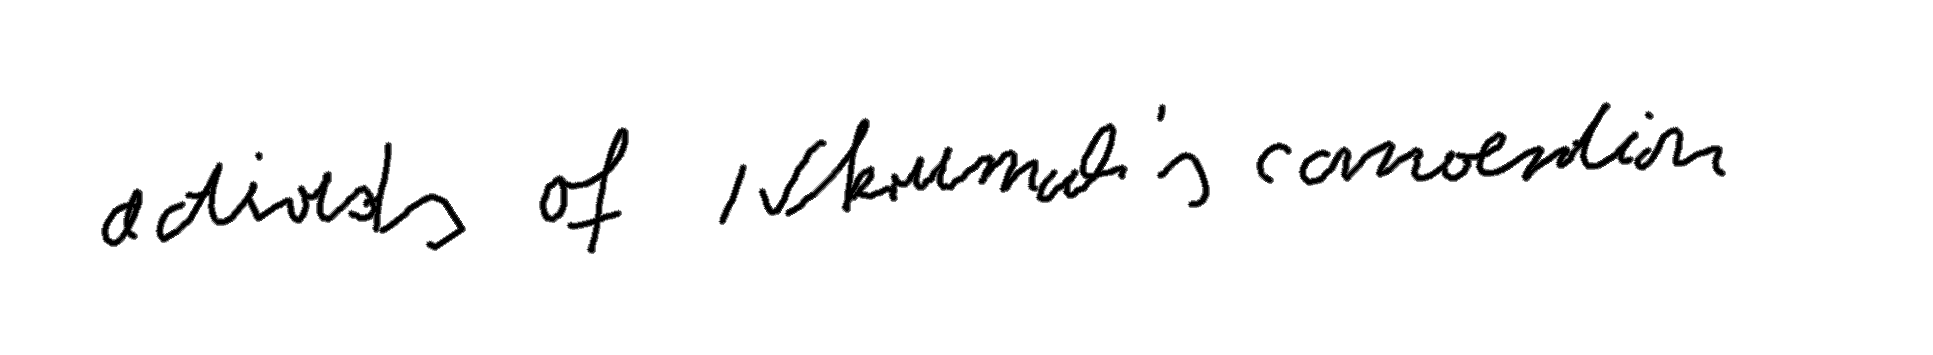 activists of Nkrumah's convention